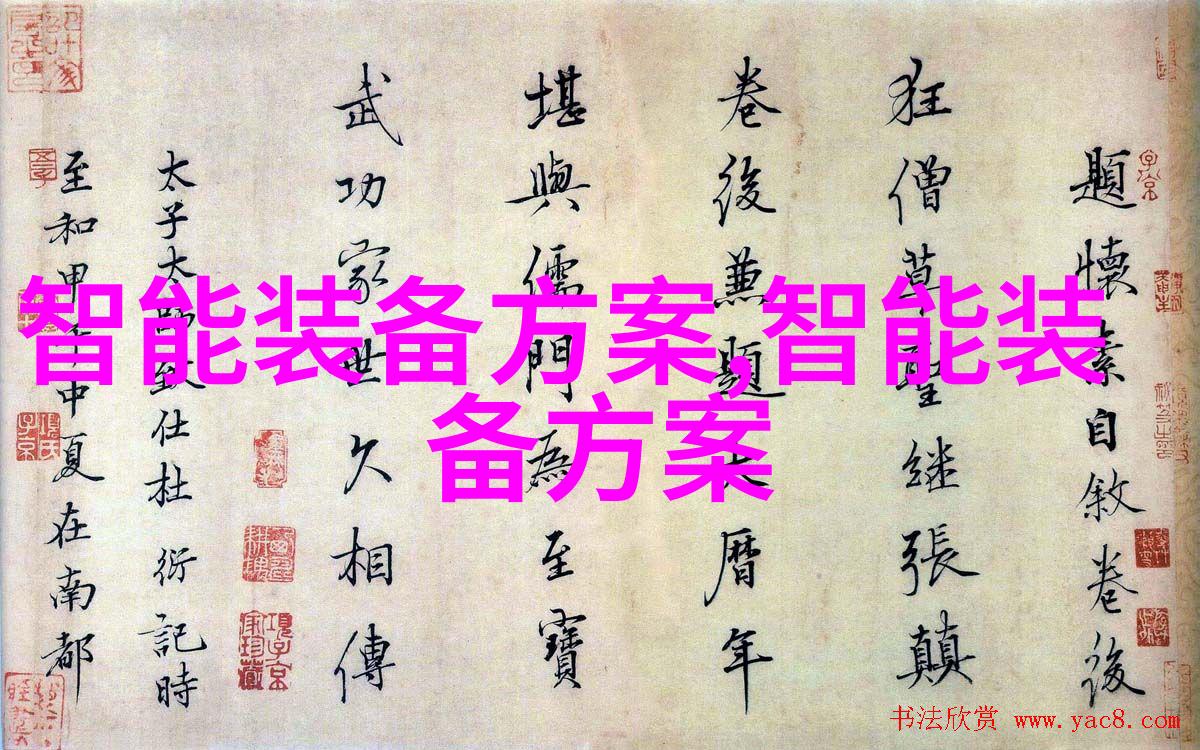 智能装备方案,智能装
备方案
題懷素自敘卷後
狂僧草聖継張顛
卷後兼題大暦年
堪與儒門為至寶
武功家世久相傳
太子太師致仕杜衍記時
至和甲午中夏在南都
书法欣赏 www.yac8.com